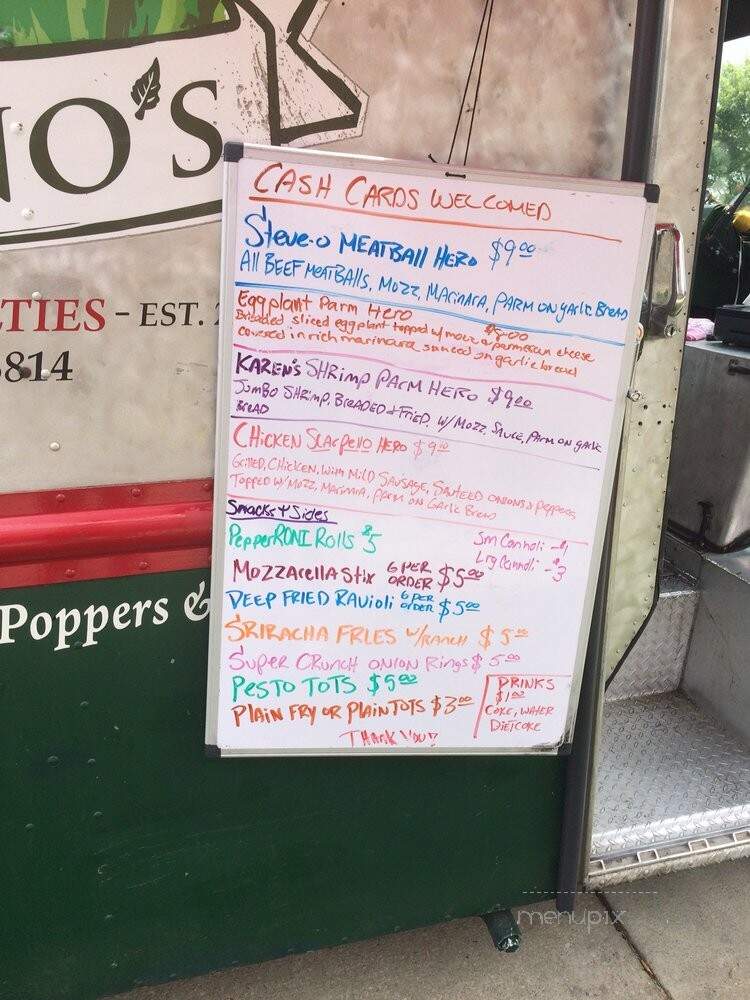 NO'S
TIES - EST. 2
3814
Poppers &
CASH CARDS WELCOMED
Steve-o MEATBALL HERO $9.00
All BEEF MEATBALLS, MOZZ, MARINARA, PARM ON GARLIC BREAD
Eggplant Parm Hero
Breaded sliced eggplant topped w/ mozz & parmesan cheese
covered in rich marinara sauced on garlic bread
KAREN'S SHRIMP PARM HERO $9.00
JUMBO SHRIMP, BREADED + FRIED, W/ MOZZ, SAUCE, PARM ON GARLIC
BREAD
CHICKEN SCARPELLO HERO $9.00
GRILLED, CHICKEN, WITH MILD SAUSAGE, SAUTEED ONIONS & PEPPERS
TOPPED W/ MOZZ, MARINARA, PARM ON GARLIC BREAD
Snacks + Sides
PepperRONI Rolls $5
Sm Cannoli - $1
Lrg Cannoli - $3
MOZZARELLA STIX 6 PER ORDER $5.00
DEEP FRIED RAVIOLI 6 PER ORDER $5.00
SRIRACHA FRIES W/ RANCH $5.00
SUPER CRUNCH ONION RINGS $5.00
PESTO TOTS $5.00
PLAIN FRY OR PLAIN TOTS $3.00
DRINKS
$1.00
COKE, WATER
DIET COKE
THANK YOU!!
menupix